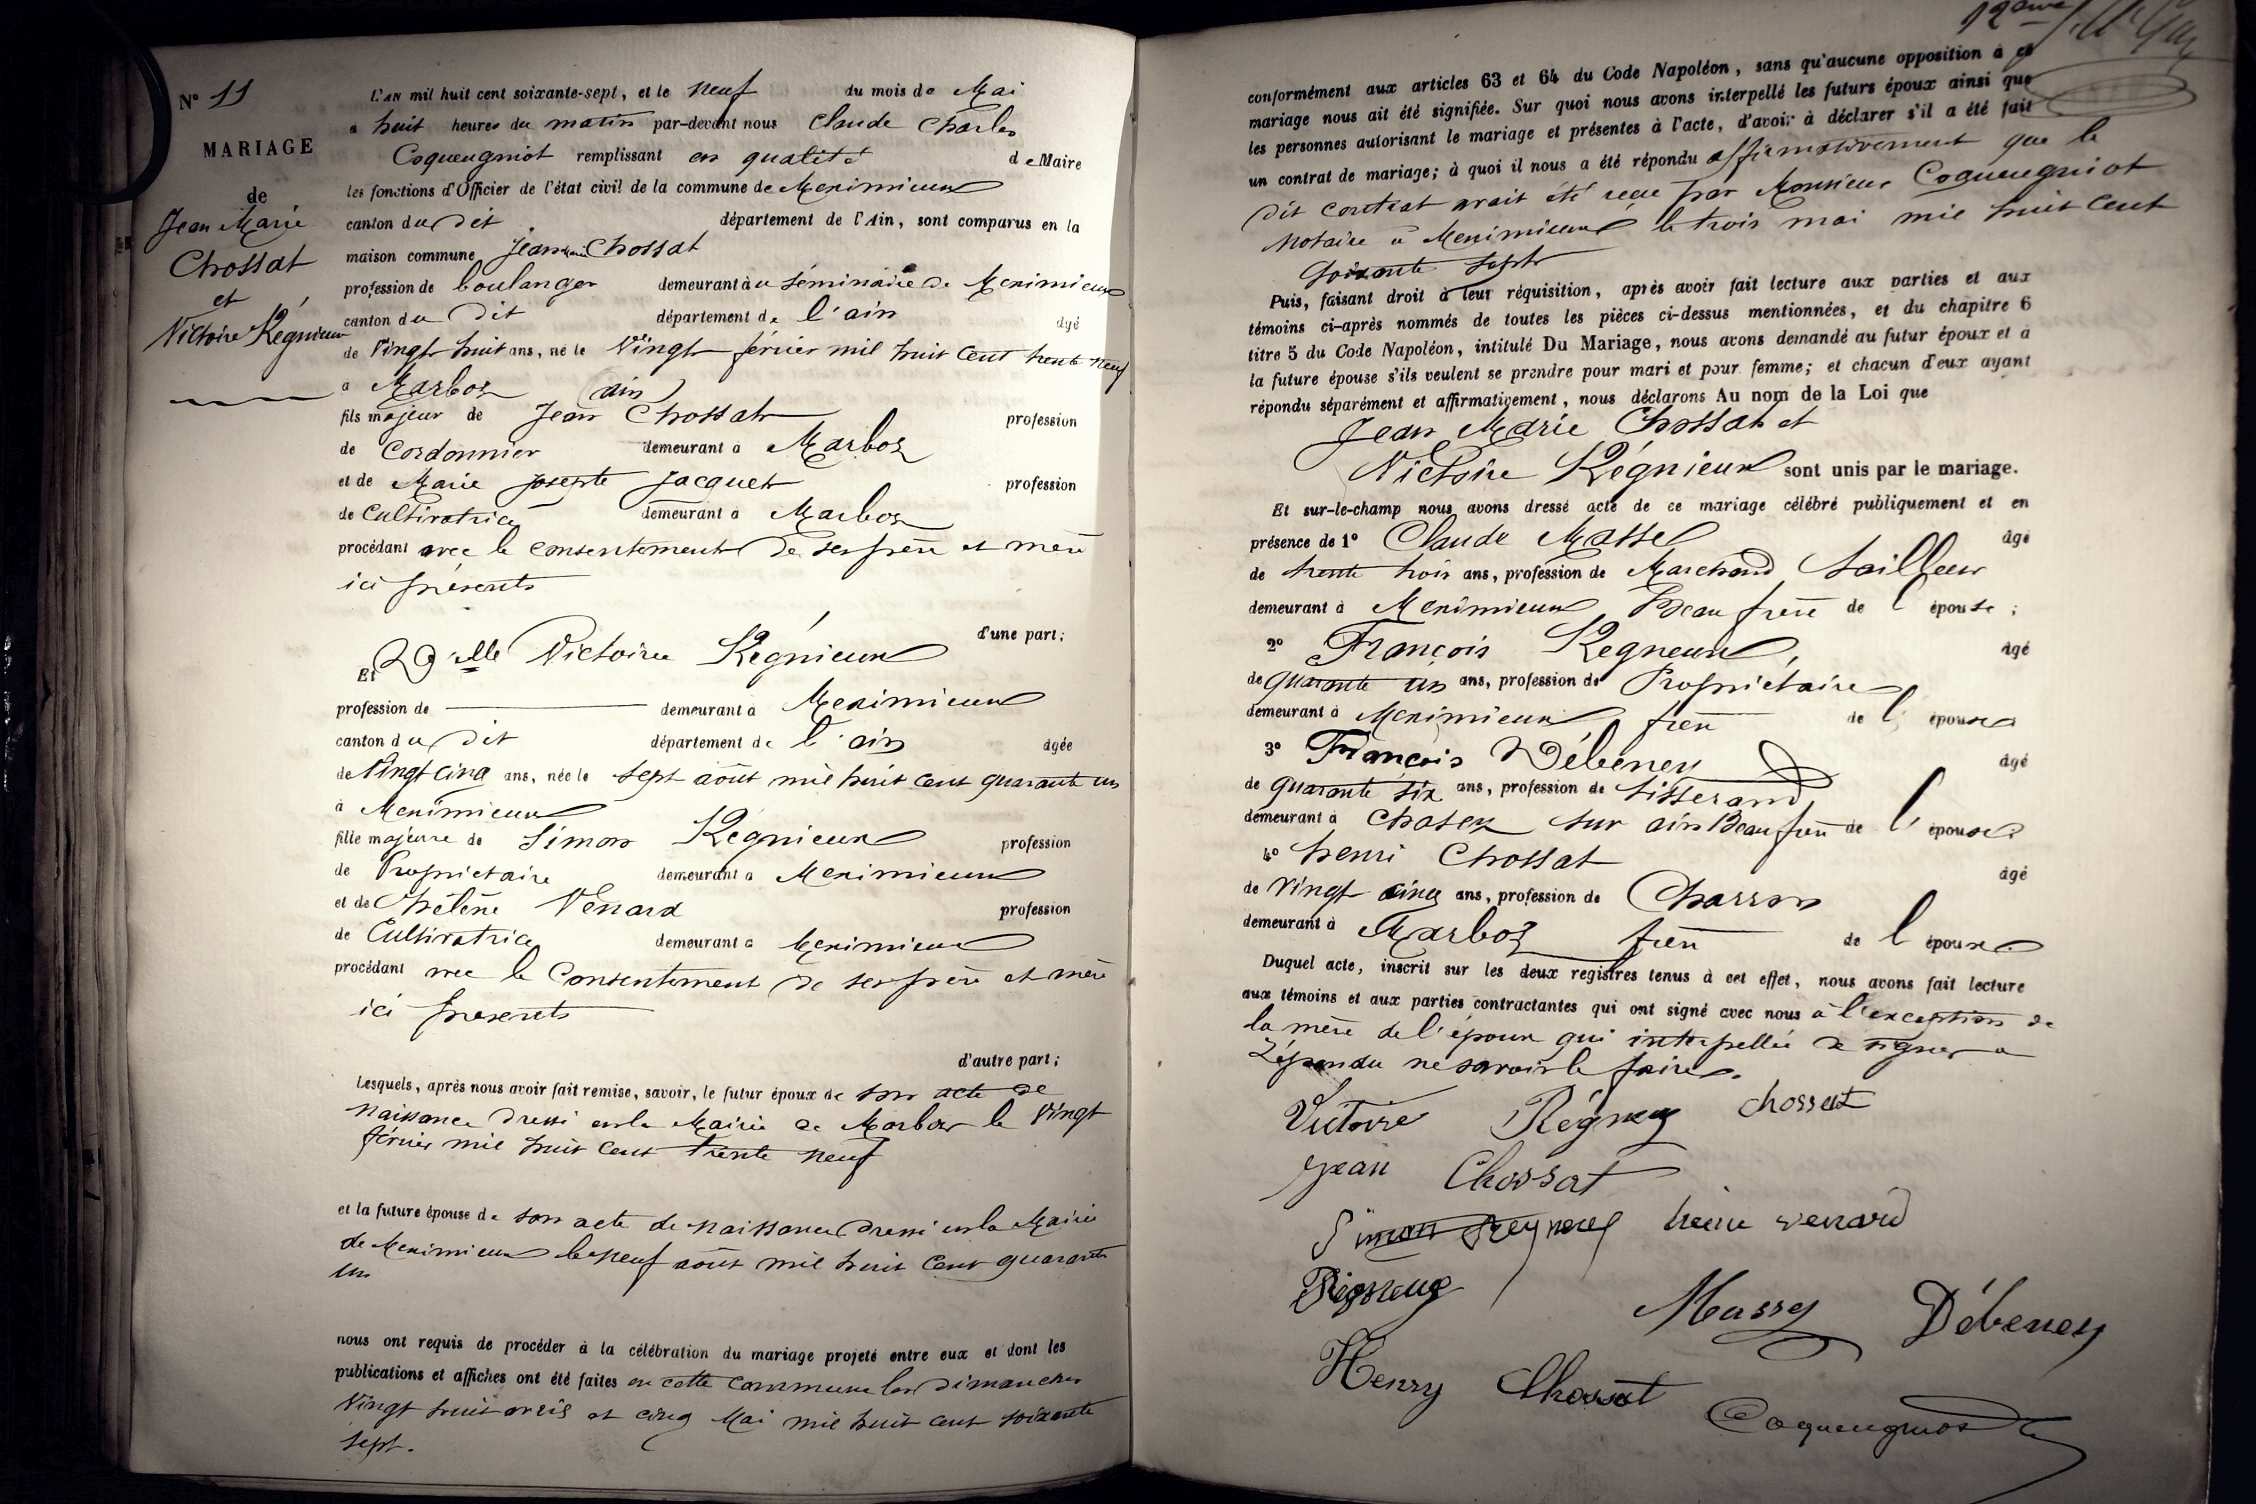 N° 11
MARIAGE
de
Jean Marie
Chossat
et
Victoire Régnieux
L'AN mil huit cent soixante-sept, et le neuf du mois de Mai
a huit heures du matin par-devant nous Claude Charles
Coqueugniot remplissant en qualité de Maire
les fonctions d'Officier de l'état civil de la commune de Meximieux
canton du dit département de l'Ain, sont comparus en la
maison commune Jean Marie Chossat
profession de boulanger demeurant à u séminaire de Meximieux
canton du dit département de l'ain âgé
de Vingt huit ans, né le Vingt février mil huit cent trente neuf
a Marboz (ain)
fils majeur de Jean Chossat profession
de Cordonnier demeurant a Marboz
et de Marie Josepte Jacquet profession
de Cultivatrice demeurant a Marboz
procédant avec le consentement de ses père et mère
ici présents
d'une part;
Et Dlle Victoire Régnieux
profession de demeurant a Meximieux
canton du dit département de l'ain âgée
de Vingt cinq ans, née le sept août mil huit cent quarante un
à Meximieux
fille majeure de Simon Régnieux profession
de Propriétaire demeurant a Meximieux
et de hélène Venard profession
de Cultivatrice demeurant a Meximieux
procédant avec le Consentement de ses père et mère
ici présents
d'autre part;
Lesquels, après nous avoir fait remise, savoir, le futur époux de son acte de
naissance dressé en la Mairie de Marboz le Vingt
février mil huit cent trente neuf
et la future épouse de son acte de naissance dressé en la Mairie
de Meximieux le neuf août mil huit cent quarante
un
nous ont requis de procéder à la célébration du mariage projeté entre eux et dont les
publications et affiches ont été faites en cette commune les dimanches
Vingt huit avril et cinq Mai mil huit cent soixante
sept.
12eme
conformément aux articles 63 et 64 du Code Napoléon, sans qu'aucune opposition à ce
mariage nous ait été signifiée. Sur quoi nous avons interpellé les futurs époux ainsi que
les personnes autorisant le mariage et présentes à l'acte, d'avoir à déclarer s'il a été fait
un contrat de mariage; à quoi il nous a été répondu affirmativement que le
dit contrat avait été reçu par Monsieur Coqueugniot
Notaire à Meximieux le trois mai mil huit cent
soixante sept
Puis, faisant droit à leur réquisition, après avoir fait lecture aux parties et aux
témoins ci-après nommés de toutes les pièces ci-dessus mentionnées, et du chapitre 6
titre 5 du Code Napoléon, intitulé Du Mariage, nous avons demandé au futur époux et à
la future épouse s'ils veulent se prendre pour mari et pour femme; et chacun d'eux ayant
répondu séparément et affirmativement, nous déclarons Au nom de la Loi que
Jean Marie Chossat et
Victoire Régnieux sont unis par le mariage.
Et sur-le-champ nous avons dressé acte de ce mariage célébré publiquement et en
présence de 1° Claude Massel âgé
de trente trois ans, profession de Marchand tailleur
demeurant à Meximieux Beau frère de l'épouse;
2° François Regneux, âgé
de quarante un ans, profession de Propriétaire
demeurant à Meximieux frère de l'épouse
3° François Débeney âgé
de quarante six ans, profession de tisserand
demeurant à Chasey sur ain Beau frère de l'épouse
4° henri Chossat âgé
de Vingt cinq ans, profession de Charron
demeurant à Marboz frère de l'époux
Duquel acte, inscrit sur les deux registres tenus à cet effet, nous avons fait lecture
aux témoins et aux parties contractantes qui ont signé avec nous à l'exception de
la mère de l'époux qui interpellée de signer a
répondu ne savoir le faire.
Victoire Régney Chossat
Jean Chossat
Simon Regneux heine venard
Regneux
Massey Débeney
Henry Chossat
Coqueugniot